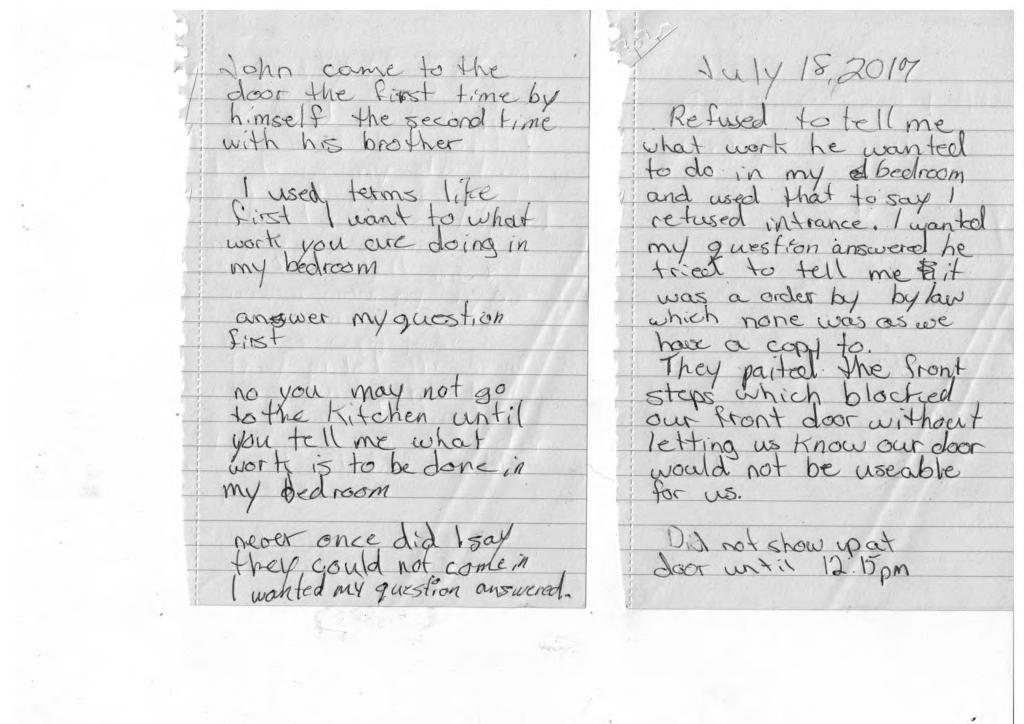 John came to the
door the first time by
himself the second time
with his brother
I used terms like
first I want to what
work you are doing in
my bedroom
answer my question
first
no you may not go
to the kitchen until
you tell me what
work is to be done in
my bedroom
never once did I say
they could not come in
I wanted my question answered.
July 18, 2017
Refused to tell me
what work he wanted
to do in my bedroom
and used that to say I
refused intrance. I wanted
my question answered he
tried to tell me it
was a order by by law
which none was as we
have a copy to.
They paited the front
steps which blocked
our front door without
letting us know our door
would not be useable
for us.
Did not show up at
door until 12:15pm